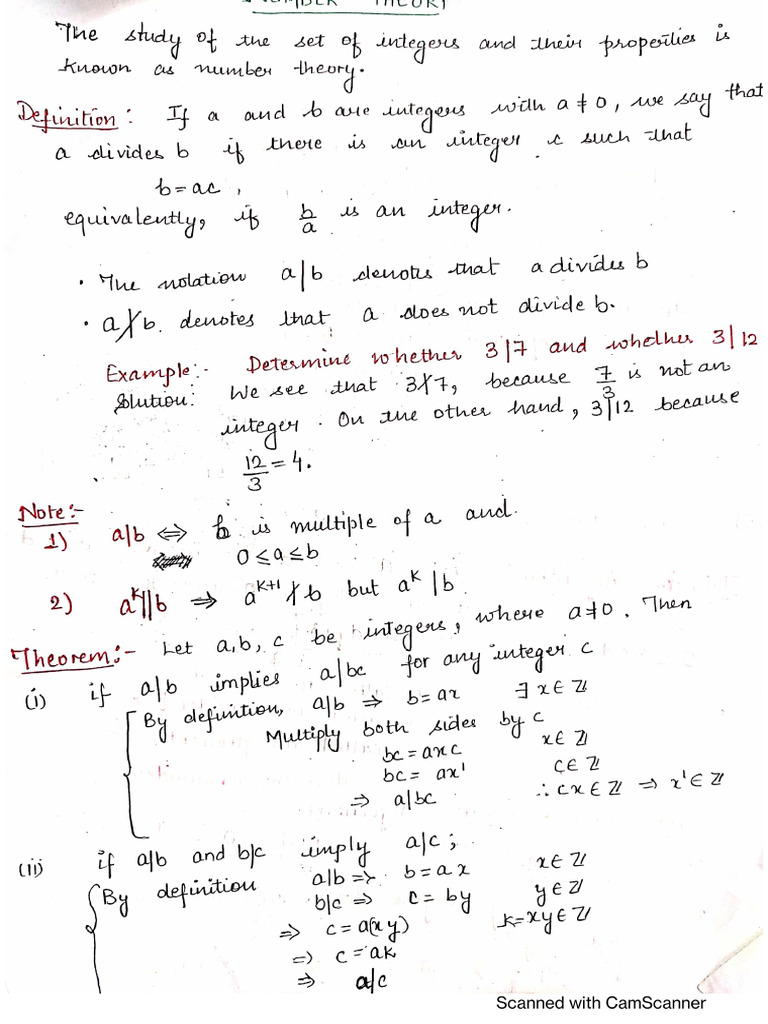 NUMBER THEORY
The study of the set of integers and their properties is
known as number theory.
Definition: If a and b are integers with a ≠ 0, we say that
a divides b if there is an integer c such that
b = ac ,
equivalently, if b/a is an integer.
• The notation a|b denotes that a divides b
• a∤b. denotes that a does not divide b.
Example:- Determine whether 3|7 and whether 3|12
Solution: We see that 3∤7, because 7/3 is not an
integer. On the other hand, 3|12 because
12/3 = 4.
Note:-
1) a|b ⇔ b is multiple of a and
0 ≤ a ≤ b
2) a^k||b ⇒ a^{k+1} ∤ b but a^k | b
Theorem:- Let a, b, c be integers, where a ≠ 0. Then
(i) if a|b implies a|bc for any integer c
By definition, a|b ⇒ b = ax ∃ x ∈ ℤ
Multiply both sides by c
bc = axc x ∈ ℤ
bc = ax' c ∈ ℤ
⇒ a|bc ∴ cx ∈ ℤ ⇒ x' ∈ ℤ
(ii) if a|b and b|c imply a|c ;
By definition a|b ⇒ b = ax x ∈ ℤ
b|c ⇒ c = by y ∈ ℤ
⇒ c = a(xy) k = xy ∈ ℤ
⇒ c = ak
⇒ a|c
Scanned with CamScanner